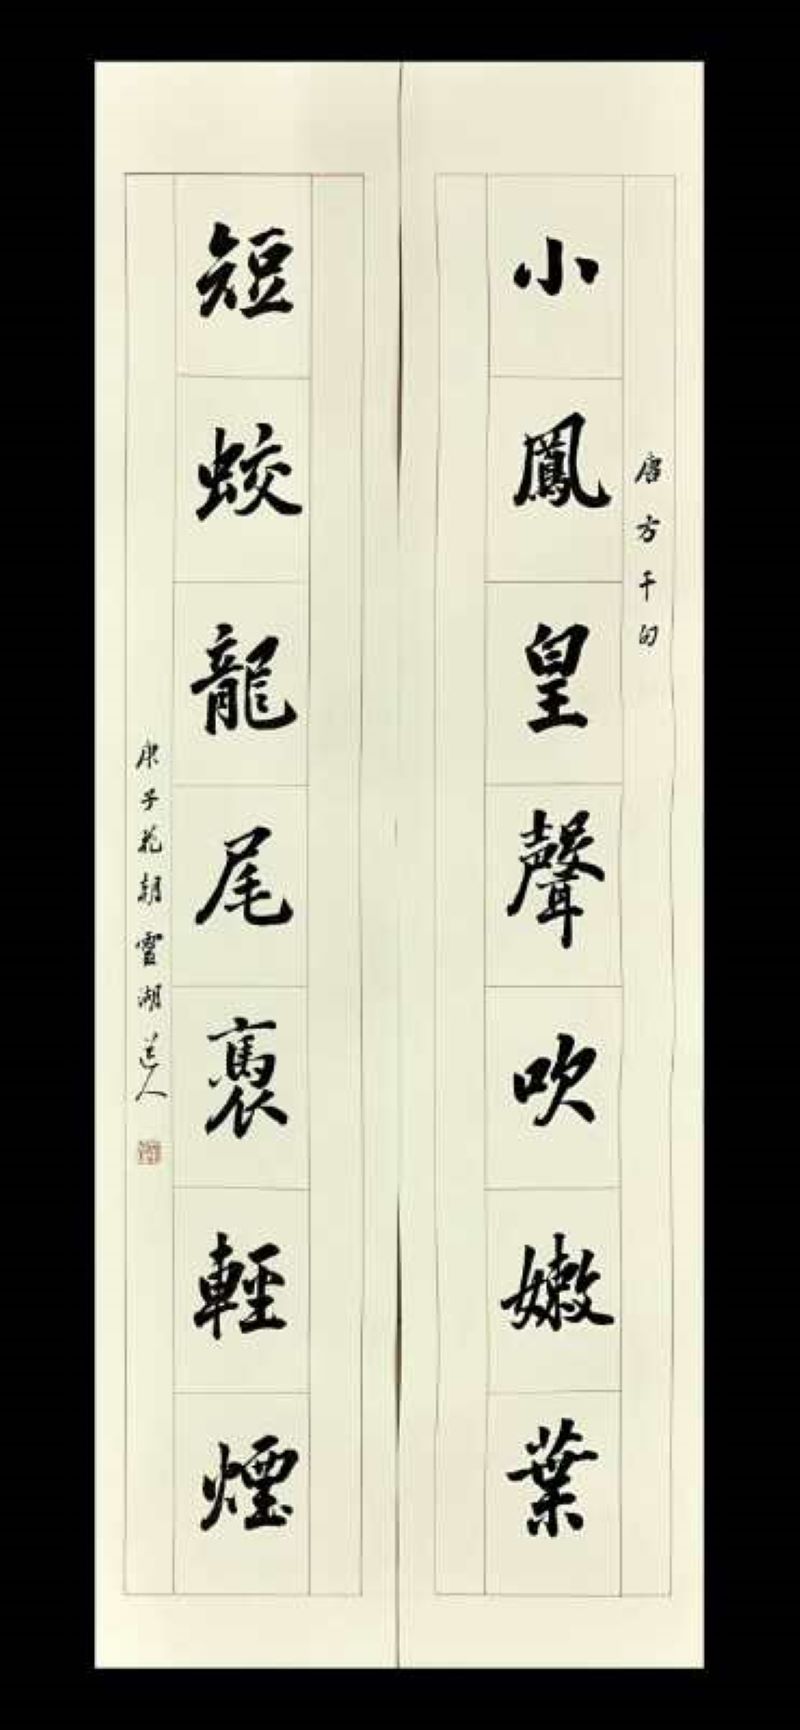 唐方干句
小鳳皇聲吹嫩葉
短蛟龍尾褭輕煙
庚子花朝雪湖道人